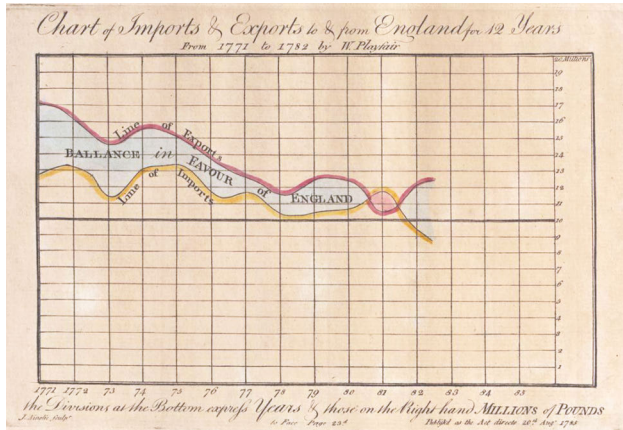 Chart of Imports & Exports to & from England for 12 Years
From 1771 to 1782 by W. Playfair
20 Millions
19
18
17
16
15
14
13
12
11
10
9
8
7
6
5
4
3
2
1
Line of Exports
BALLANCE in FAVOUR of ENGLAND
Line of Imports
1771 1772 73 74 75 76 77 78 79 80 81 82 83 84 85
the Divisions at the Bottom express Years & those on the Right hand MILLIONS of POUNDS
J. Ainslie Sculpt.
to Face Page 23d
Publish'd as the Act directs 20th Augt. 1785